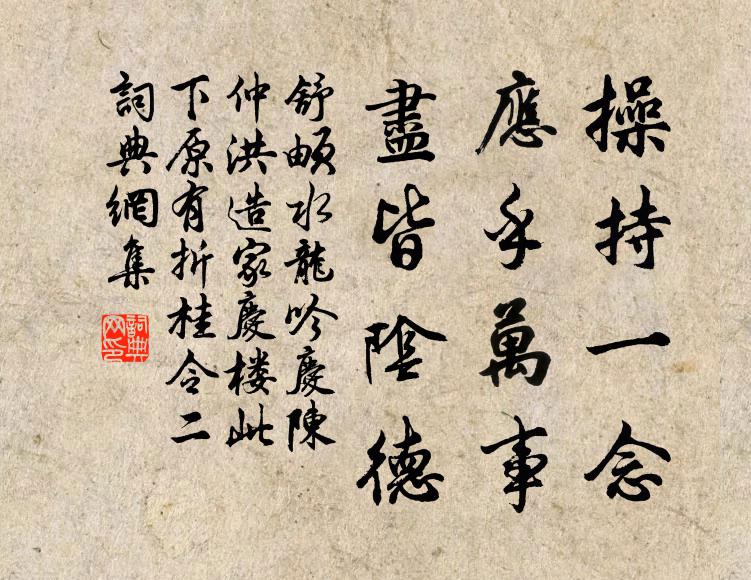 操持一念
應乎萬事
盡皆陰德
舒頔水龍吟慶陳
仲洪造家慶楼此
下原有折桂令二
詞典網集
詞典
网印